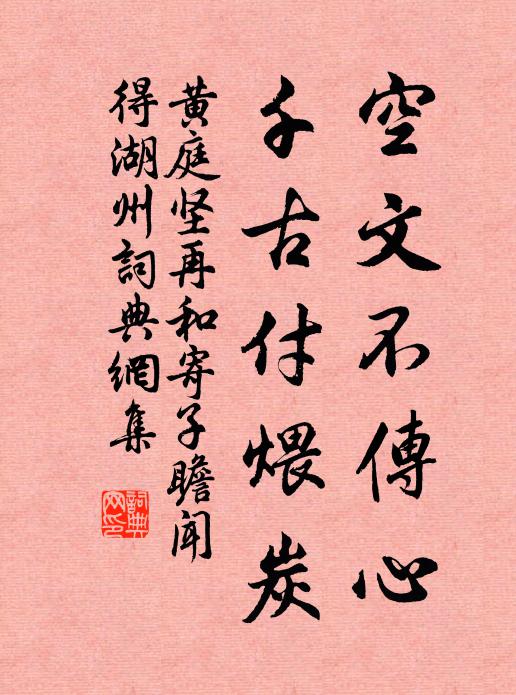 空文不傳心
千古付煨炭
黄庭坚再和寄子瞻聞
得湖州詞典網集
詞典網印